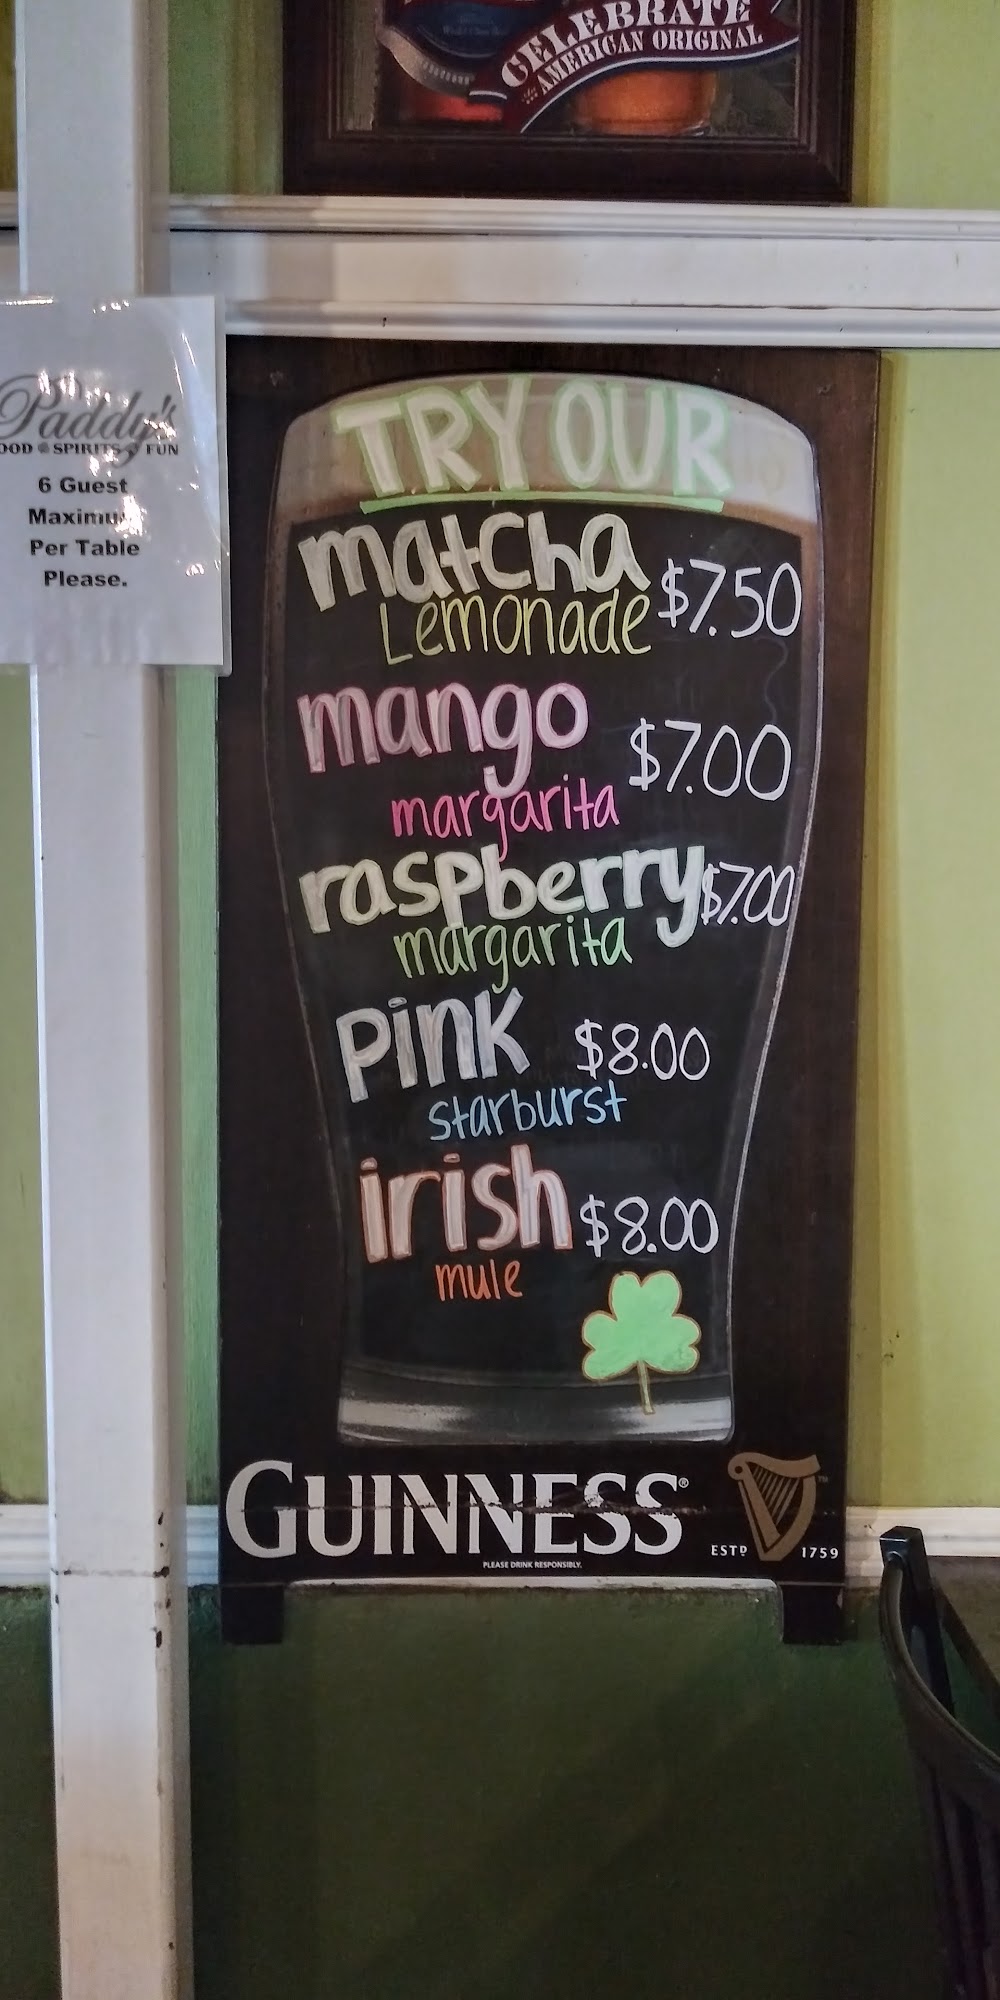 CELEBRATE
AMERICAN ORIGINAL
Paddy's
OOD SPIRITS FUN
6 Guest
Maximum
Per Table
Please.
TRY OUR
matcha
Lemonade $7.50
mango
$7.00
margarita
raspberry $7.00
margarita
pink $8.00
starburst
irish $8.00
mule
GUINNESS®
ESTD 1759
PLEASE DRINK RESPONSIBLY.